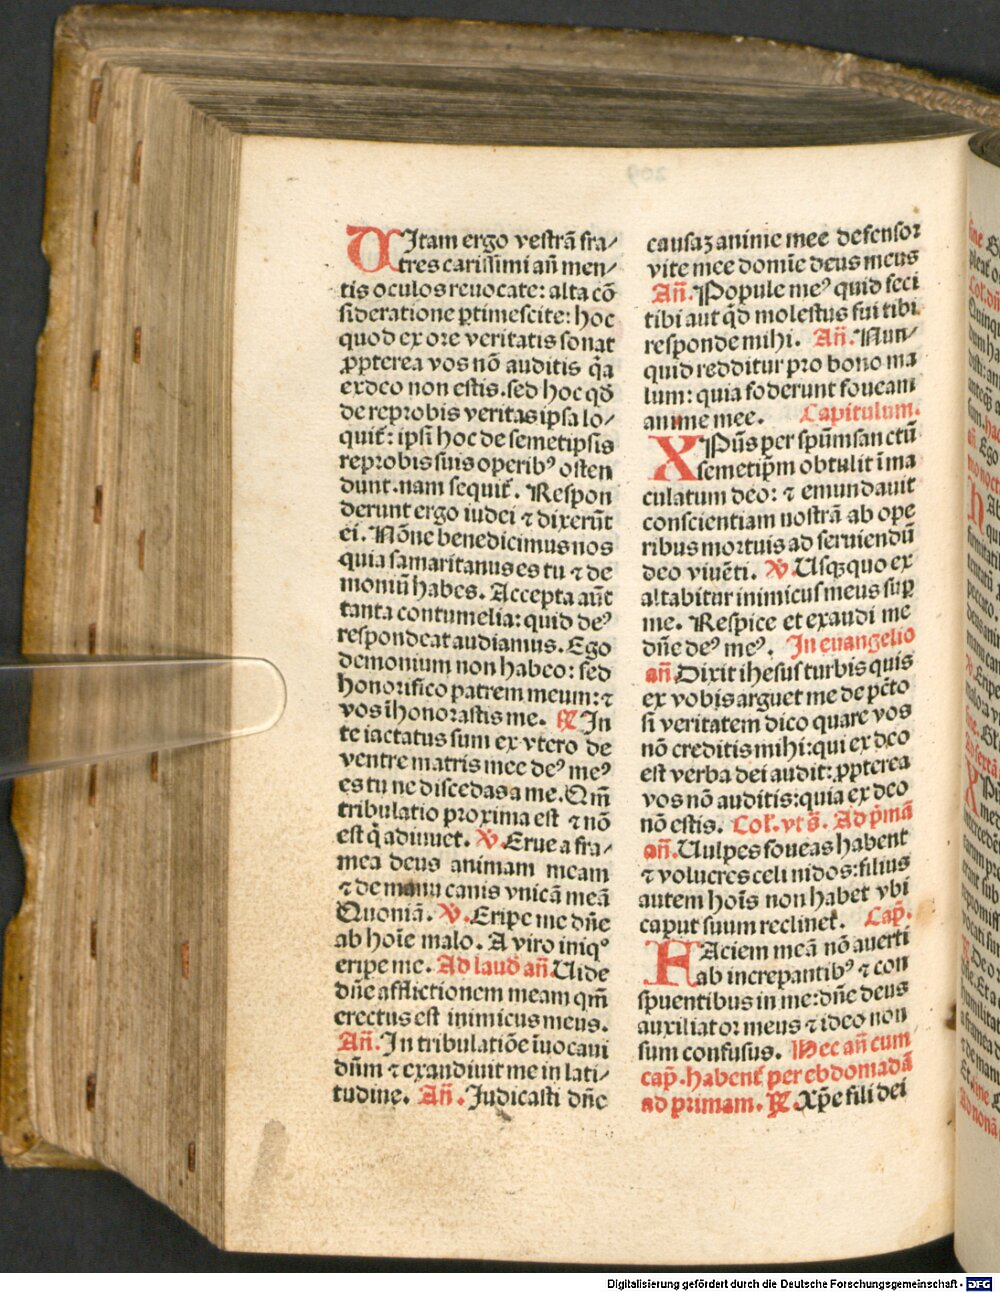 UItam ergo vestrā fra/
tres carissimi añ men/
tis oculos reuocate: alta cō
sideratione ꝑtimescite: hoc
quod ex ore veritatis sonat
ꝓpterea vos nō auditis q̄a
ex deo non estis. sed hoc qđ
de reprobis veritas ipsa lo/
quit᷑: ipsi hoc de semetipsis
reprobis suis operibꝰ osten
dunt. nam sequit᷑. Respon
derunt ergo iudei ⁊ dixerūt
ei. Nōne benedicimus nos
quia samaritanus es tu ⁊ de
moniū habes. Accepta aūt
tanta contumelia: quid deꝰ
respondeat audiamus. Ego
demonium non habeo: sed
honorifico patrem meum: ⁊
vos īhonorastis me. ℟ In
te iactatus sum ex vtero de
ventre matris mee deꝰ meꝰ
es tu ne discedas a me. Qm̄
tribulatio proxima est ⁊ nō
est q̄ adiuuet. ℣. Erue a fra/
mea deus animam meam
⁊ de manu canis vnicā meā
Quoniā. ℣. Eripe me dn̄e
ab hoīe malo. A viro iniqꝰ
eripe me. Ad laud̄ añ. Uide
dn̄e afflictionem meam qm̄
erectus est inimicus meus.
Añ. In tribulatiōe īuocaui
dn̄m ⁊ exaudiuit me in lati/
tudine. Añ. Iudicasti dn̄e
causaꝫ anime mee defensor
vite mee domīe deus meus
Añ. Popule meꝰ quid feci
tibi aut qđ molestus fui tibi
responde mihi. Añ. Nun/
quid redditur pro bono ma
lum: quia foderunt foueam
anime mee. Capitulum.
XPūs per spūm sanctū
semetip̄m obtulit īma
culatum deo: ⁊ emundauit
conscientiam nostrā ab ope
ribus mortuis ad seruiendū
deo viuēti. ℣. Usqꝫquo ex
altabitur inimicus meus suꝑ
me. Respice et exaudi me
dn̄e deꝰ meꝰ. In euangelio
añ. Dixit ihesus turbis quis
ex vobis arguet me de pctō
si veritatem dico quare vos
nō creditis mihi: qui ex deo
est verba dei audit: ꝓpterea
vos nō auditis: quia ex deo
nō estis. Col᷑. vt s̄. Ad p̄mā
añ. Uulpes foueas habent
⁊ volucres celi nidos: filius
autem hoīs non habet vbi
caput suum reclinet. Cap̄.
FAciem meā nō auerti
ab increpantibꝰ ⁊ con
spuentibus in me: dn̄e deus
auxiliator meus ⁊ ideo non
sum confusus. Hec añ cum
cap̄. habent᷑ per ebdomadā
ad primam. ℟. Xp̄e fili dei
Digitalisierung gefördert durch die Deutsche Forschungsgemeinschaft - DFG